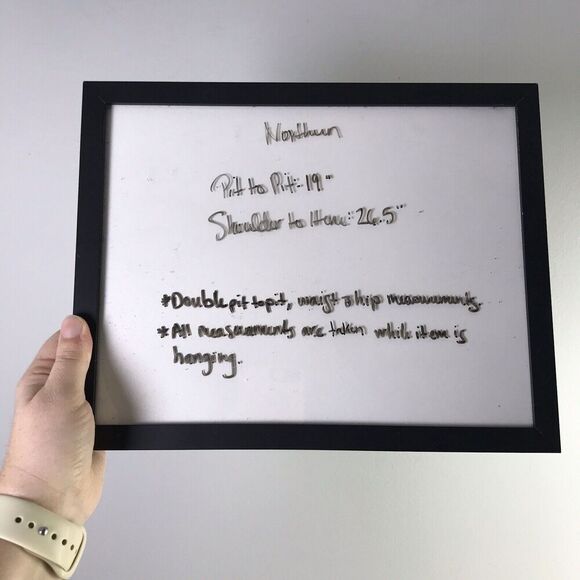 Northern
Pit to Pit: 19"
Shoulder to Hem: 26.5"
*Double pit to pit, waist & hip measurements.
*All measurements are taken while item is
hanging.